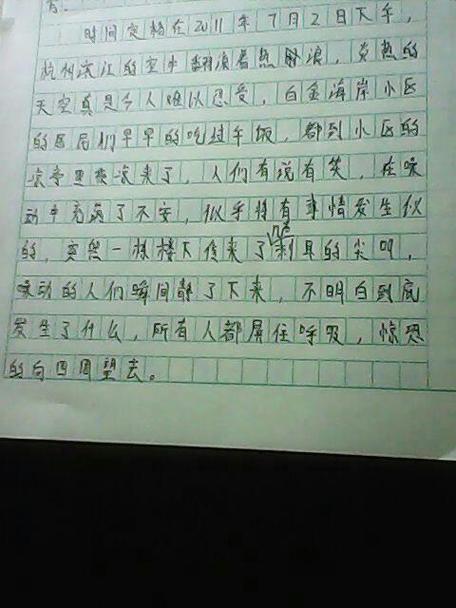 育。
时间定格在2011年7月2日下午，
杭州滨江的空中翻滚着热浪，炎热的
天空真是令人难以忍受，白金海岸小区
的居民们早早的吃过午饭，都到小区的
凉亭里乘凉来了，人们有说有笑，在喊
动中充满了不安，似乎将有事情发生似
的，突然一栋楼下传来了一声刺耳的尖叫，
喊动的人们瞬间静了下来，不明白到底
发生了什么，所有人都屏住呼吸，惊恐
的向四周望去。